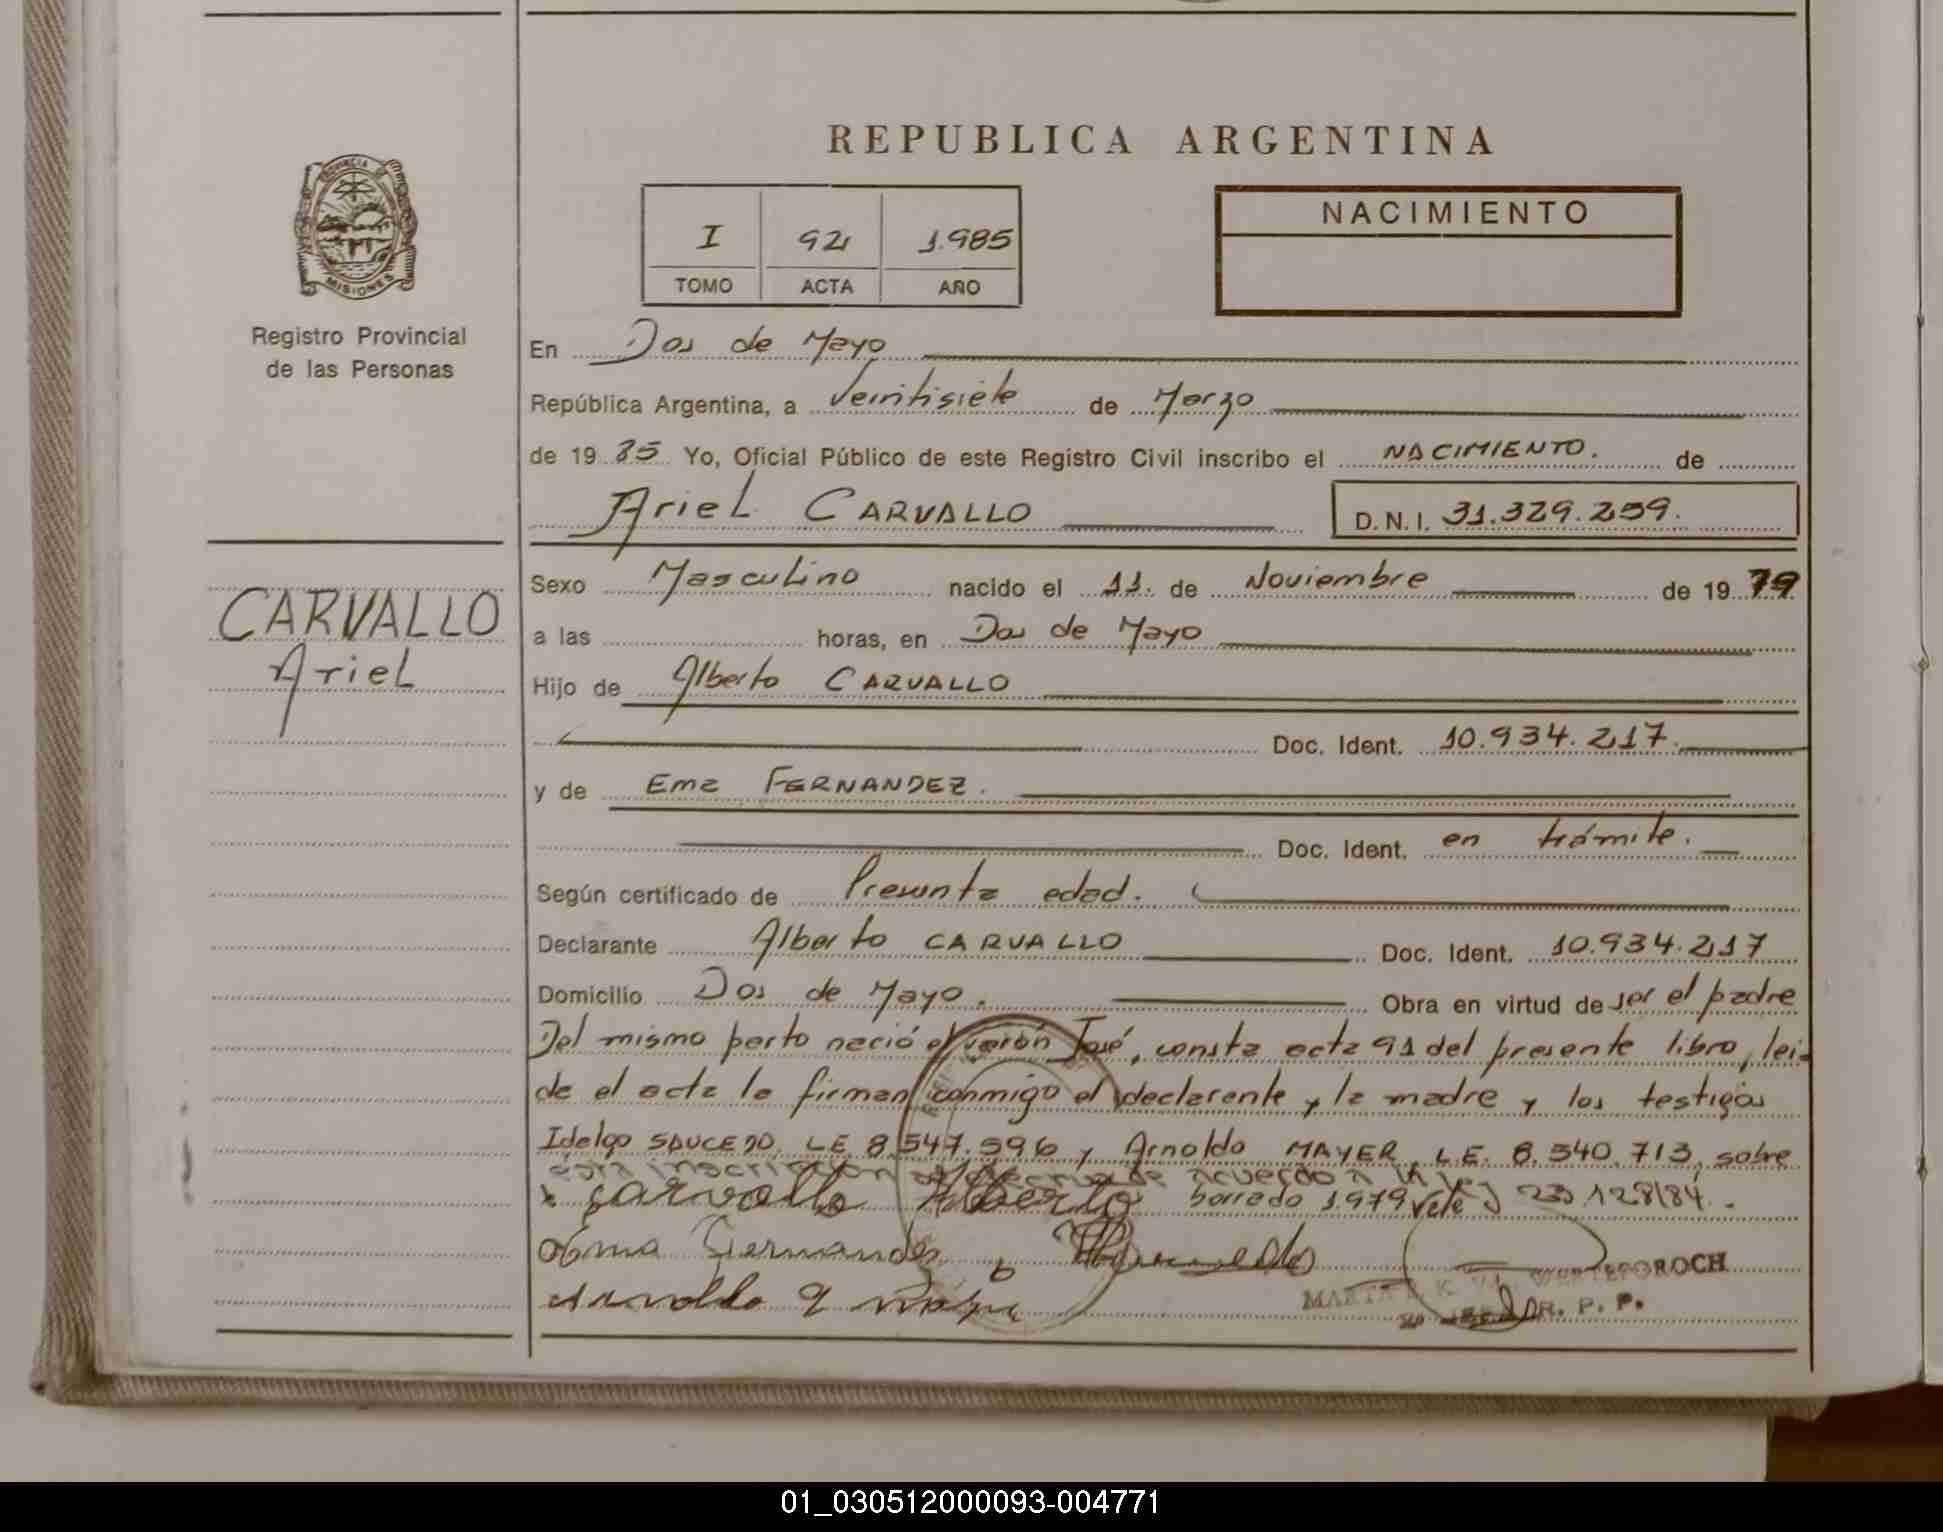 REPUBLICA ARGENTINA
PROVINCIA DE MISIONES
Registro Provincial
de las Personas
I 92 1.985
TOMO ACTA AÑO
NACIMIENTO
En Dos de Mayo
República Argentina, a Veintisiete de Marzo
de 19 85 Yo, Oficial Público de este Registro Civil inscribo el NACIMIENTO. de
Ariel CARVALLO D.N.I. 31.329.259.
CARVALLO
Ariel
Sexo Masculino nacido el 11. de Noviembre de 19 79
a las horas, en Dos de Mayo
Hijo de Alberto CARVALLO
Doc. Ident. 10.934.217.
y de Ema FERNANDEZ.
Doc. Ident. en trámite.
Según certificado de Presunta edad.
Declarante Alberto CARVALLO Doc. Ident. 10.934.217
Domicilio Dos de Mayo. Obra en virtud de ser el padre
Del mismo parto nació el varón José, consta acta 91 del presente libro, lei-
da el acta la firman conmigo el declarante y la madre y los testigos
Idelgo SAUCEDO, LE. 8.547.596 y Arnoldo MAYER, L.E. 8.340.713, sobre
esta inscripcion de acuerdo a la ley 23.128/84.-
borrado 1.979 Vale
Carvallo Alberto
Ema Fernandez
Arnoldo
MARTA K. WERTEFOROCH
R. P. P.
01_030512000093-004771